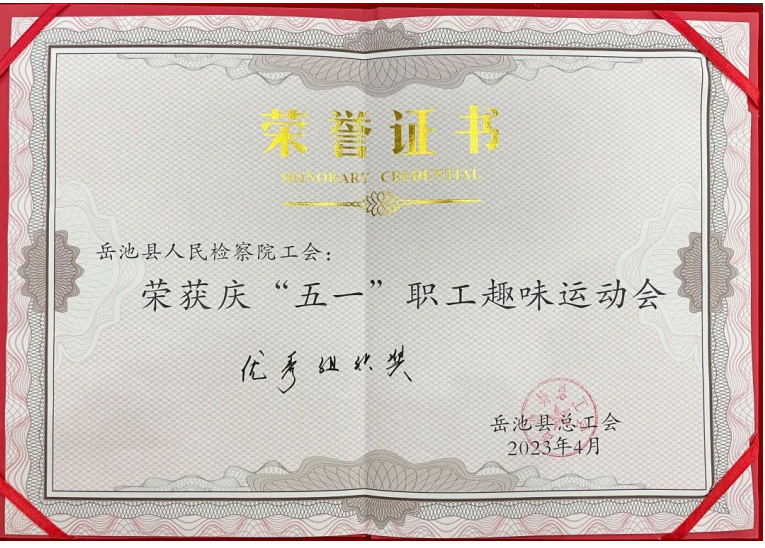 荣誉证书
HONORARY CREDENTIAL
岳池县人民检察院工会：
荣获庆“五一”职工趣味运动会
优秀组织奖
岳池县总工会
2023年4月